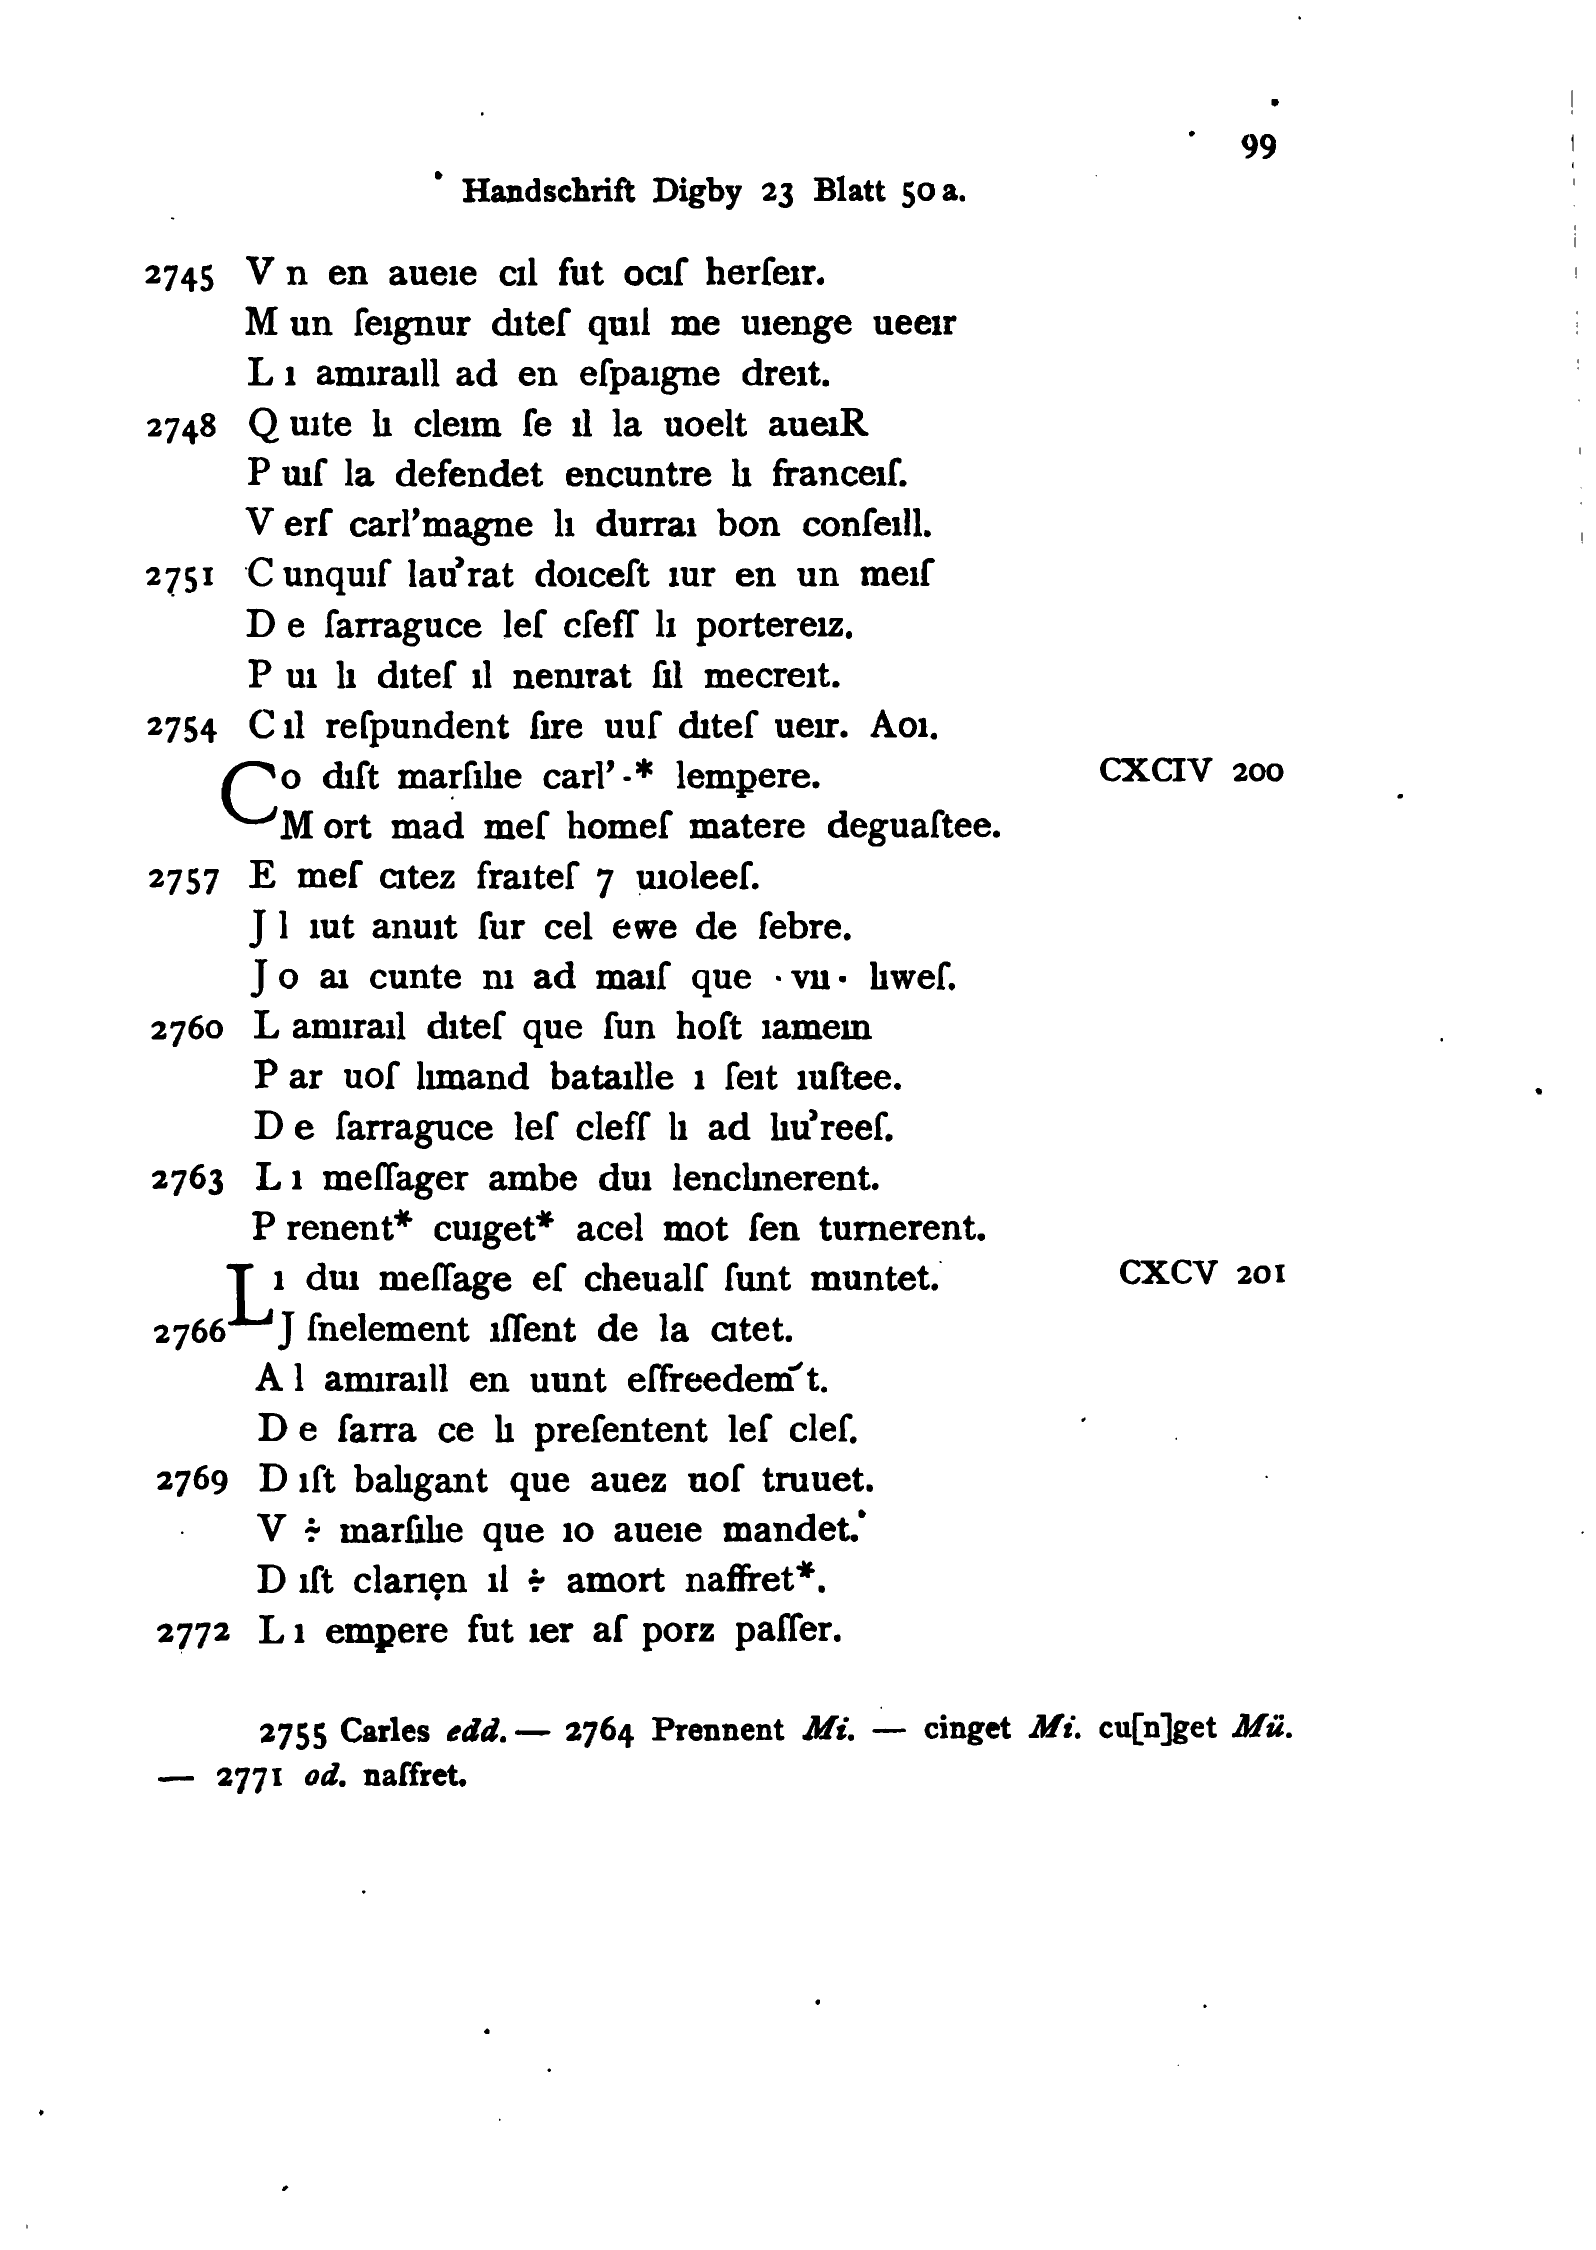 99
Handschrift Digby 23 Blatt 50 a.
2745 V n en aueıe cıl fut ocıſ herſeır.
M un ſeıgnur dıteſ quıl me uıenge ueeır
L ı amıraıll ad en eſpaıgne dreıt.
2748 Q uıte lı cleım ſe ıl la uoelt aueıR
P uıſ la defendet encuntre lı franceıſ.
V erſ carl’magne lı durraı bon conſeıll.
2751 C unquıſ lau’rat doıceſt ıur en un meıſ
D e ſarraguce leſ cſeſſ lı portereız.
P uı lı dıteſ ıl nenırat ſıl mecreıt.
2754 C ıl reſpundent ſıre uuſ dıteſ ueır. Aoı.
Co dıſt marſılıe carl’ -* lempere. CXCIV 200
M ort mad meſ homeſ matere deguaſtee.
2757 E meſ cıtez fraıteſ 7 uıoleeſ.
J l ıut anuıt ſur cel ewe de ſebre.
J o aı cunte nı ad maıſ que · vıı · lıweſ.
2760 L amıraıl dıteſ que ſun hoſt ıameın
P ar uoſ lımand bataılle ı ſeıt ıuſtee.
D e ſarraguce leſ cleſſ lı ad lıu’reeſ.
2763 L ı meſſager ambe duı lenclınerent.
P renent* cuıget* acel mot ſen turnerent.
Lı duı meſſage eſ cheualſ ſunt muntet. CXCV 201
2766 J ſnelement ıſſent de la cıtet.
A l amıraıll en uunt eſfreedem̄t.
D e ſarra ce lı preſentent leſ cleſ.
2769 D ıſt balıgant que auez uoſ truuet.
V ÷ marſılıe que ıo aueıe mandet.
D ıſt clarıẹn ıl ÷ amort naffret*.
2772 L ı empere fut ıer aſ porz paſſer.
2755 Carles edd. — 2764 Prennent Mi. — cinget Mi. cu[n]get Mü.
— 2771 od. naſfret.